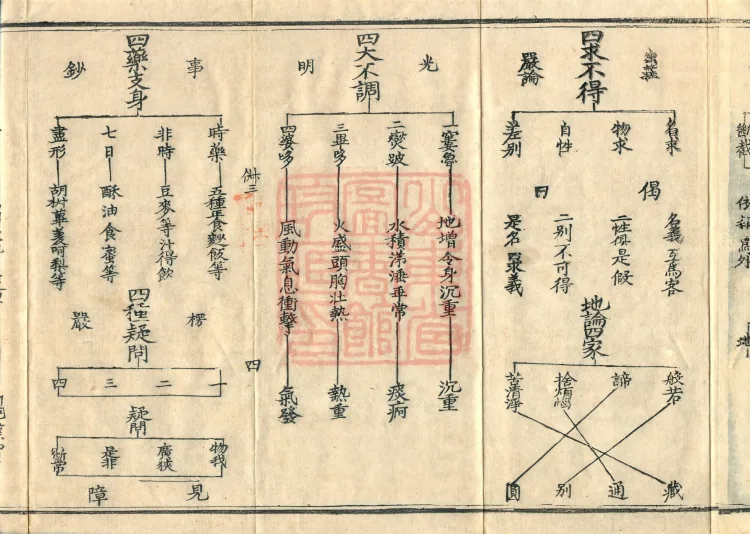 四求不得
嚴論
名求
物求
自性
差別
偈
曰
名義互為客
二性俱是假
二別不可得
是名四求義
地論四家
般若
諦
捨煩惱
苦清淨
藏
通
別
圓
四大不調
光明
一窶魯 地增令身沉重 沉重
二燮跛 水積涕唾乖常 痰痾
三畢哆 火盛頭胸壯熱 熱重
四婆哆 風動氣息衝擊 氣發
四
四藥支身
事鈔
時藥 五種正食麨飯等
非時 豆麥等汁得飲
七日 酥油食蜜等
盡形 胡椒蓽茇呵梨等
四種疑問
楞嚴
一
二
三
四
疑問
物我
廣狹
是非
斷常
見障